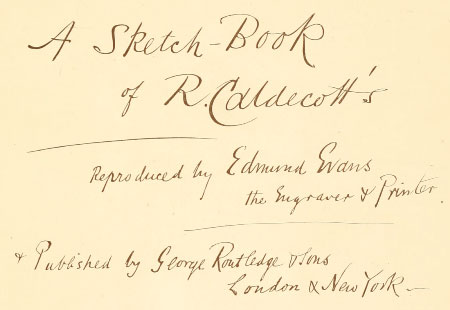 A Sketch-Book
of R. Caldecott's
Reproduced by Edmund Evans
the Engraver & Printer.
& Published by George Routledge & Sons
London & New York —